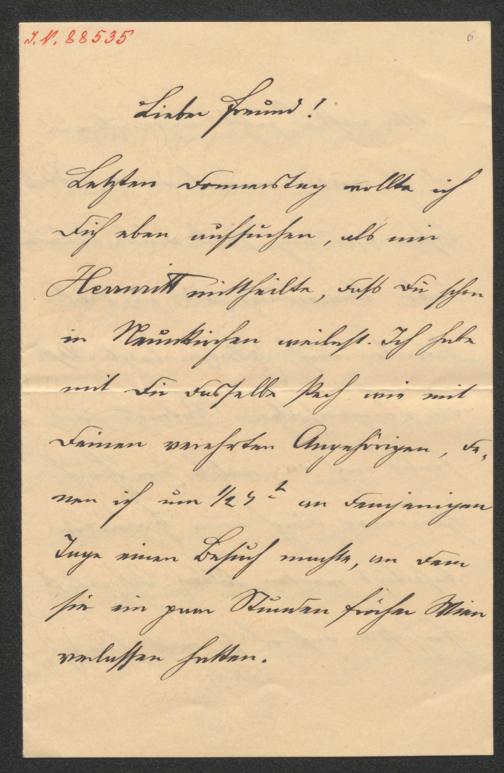 I.N. 88535
6
Lieber Freund!
Letzten Donnerstag wollte ich
Dich eben aufsuchen, als mir
Herrnritt mittheilte, dass Du schon
in Neunkirchen weilest. Ich habe
mit Dir dasselbe Pech wie mit
Deinen verehrten Angehörigen, de-
nen ich um 1/2 5 h an demjenigen
Tage einen Besuch machte, an dem
sie ein paar Stunden früher Wien
verlassen hatten.